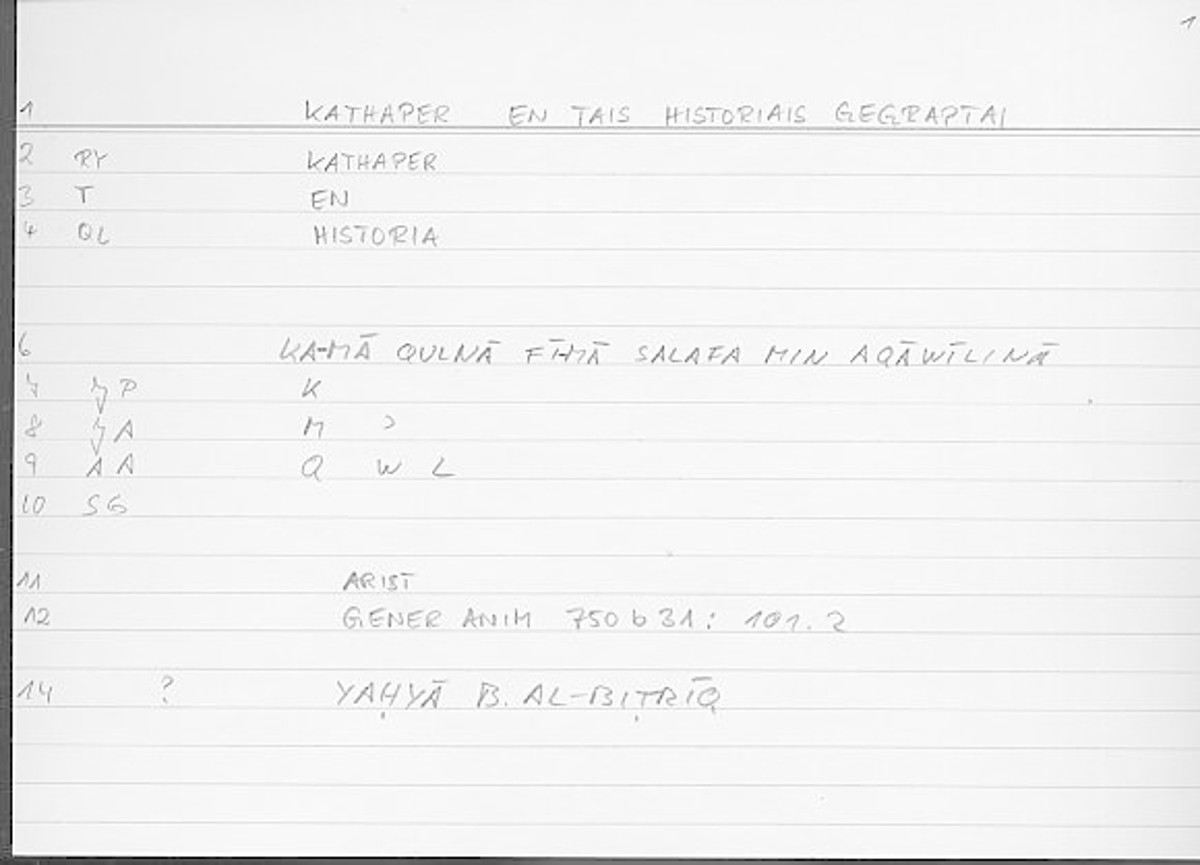 1
1 KATHAPER EN TAIS HISTORIAIS GEGRAPTAI
2 RY KATHAPER
3 T EN
4 QL HISTORIA
6 KA-MĀ QULNĀ FĪ-MĀ SALAFA MIN AQĀWĪLINĀ
7 P K
8 A M ɔ
9 A A Q W L
10 SG
11 ARIST
12 GENER ANIM 750 b 31 : 101. 2
14 ? YAḤYĀ B. AL-BIṬRĪQ